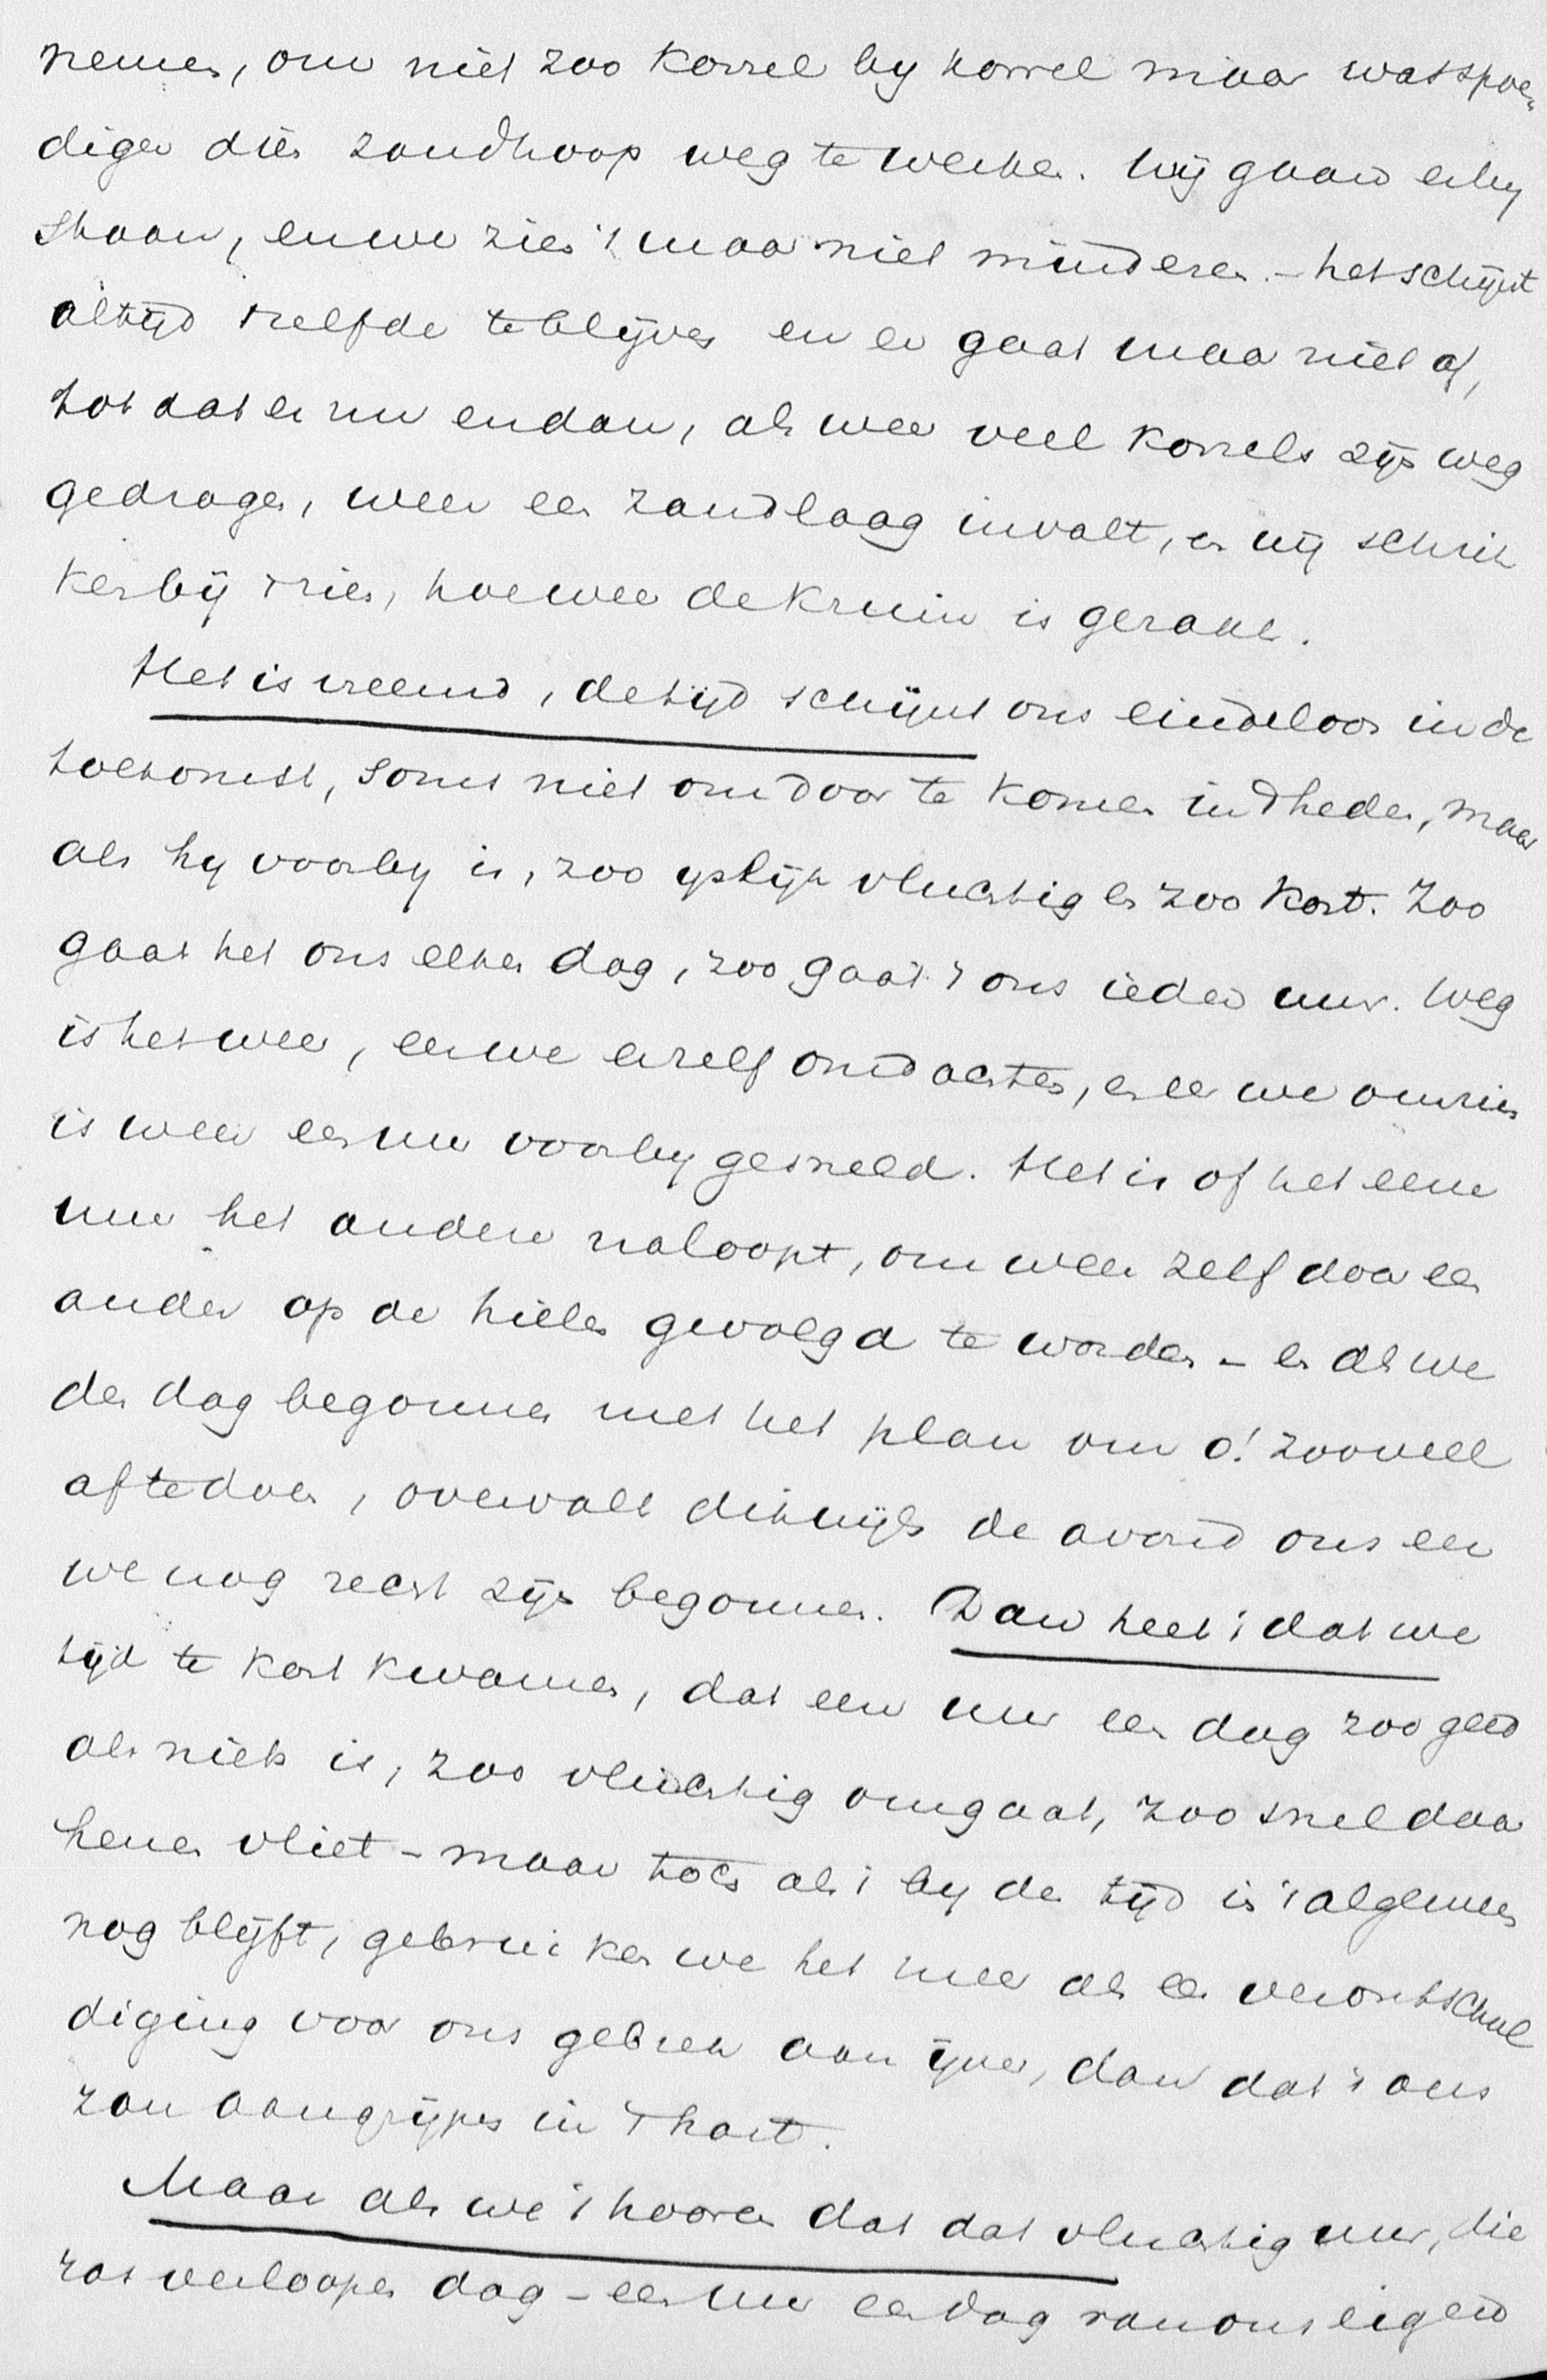 nemen, om niet zoo korrel by korrel maar wat spoe-
diger dien zandhoop weg te werken. Wij gaan erby
staan, en we zien 't maar niet minderen. - het schijnt
altijd 't zelfde te blijven en er gaat maar niet af,
tot dat er nu en dan, als weer veel korrels zijn weg
gedragen, weer een zandlaag invalt, en wij schrik
ken bij 't zien, hoe weer de kruin is geraakt.
Het is vreemd, de tijd schijnt ons eindeloos in de
toekomst, soms niet om door te komen in 't heden, maar
als hy voorby is, zoo ijslijk vluchtig en zoo kort. Zoo
gaat het ons elken dag, zoo gaat 't ons ieder uur. Weg
is het weer, eer we er zelf om dachten, en eer we omzien
is weer een uur voorby gesneld. Het is of het eene
uur het andere naloopt, om weer zelf door een
ander op de hielen gevolgd te worden - en als we
den dag begonnen met het plan om o! zooveel
af te doen, overvalt dikwijls de avond ons eer
we nog recht zijn begonnen. Dan heet 't dat we
tijd te kort kwamen, dat een uur een dag zoo goed
als niets is, zoo vluchtig omgaat, zoo snel daar
henen vliet - maar toch als 't by den tijd in 't algemeen
nog blijft, gebruiken we het meer als een verontschul
diging voor ons gebrek aan ijver, dan dat 't ons
zou aangrijpen in 't hart.
Maar als we 't hooren dat dat vluchtig uur, die
ras verloopen dag - een uur een dag van ons eigen